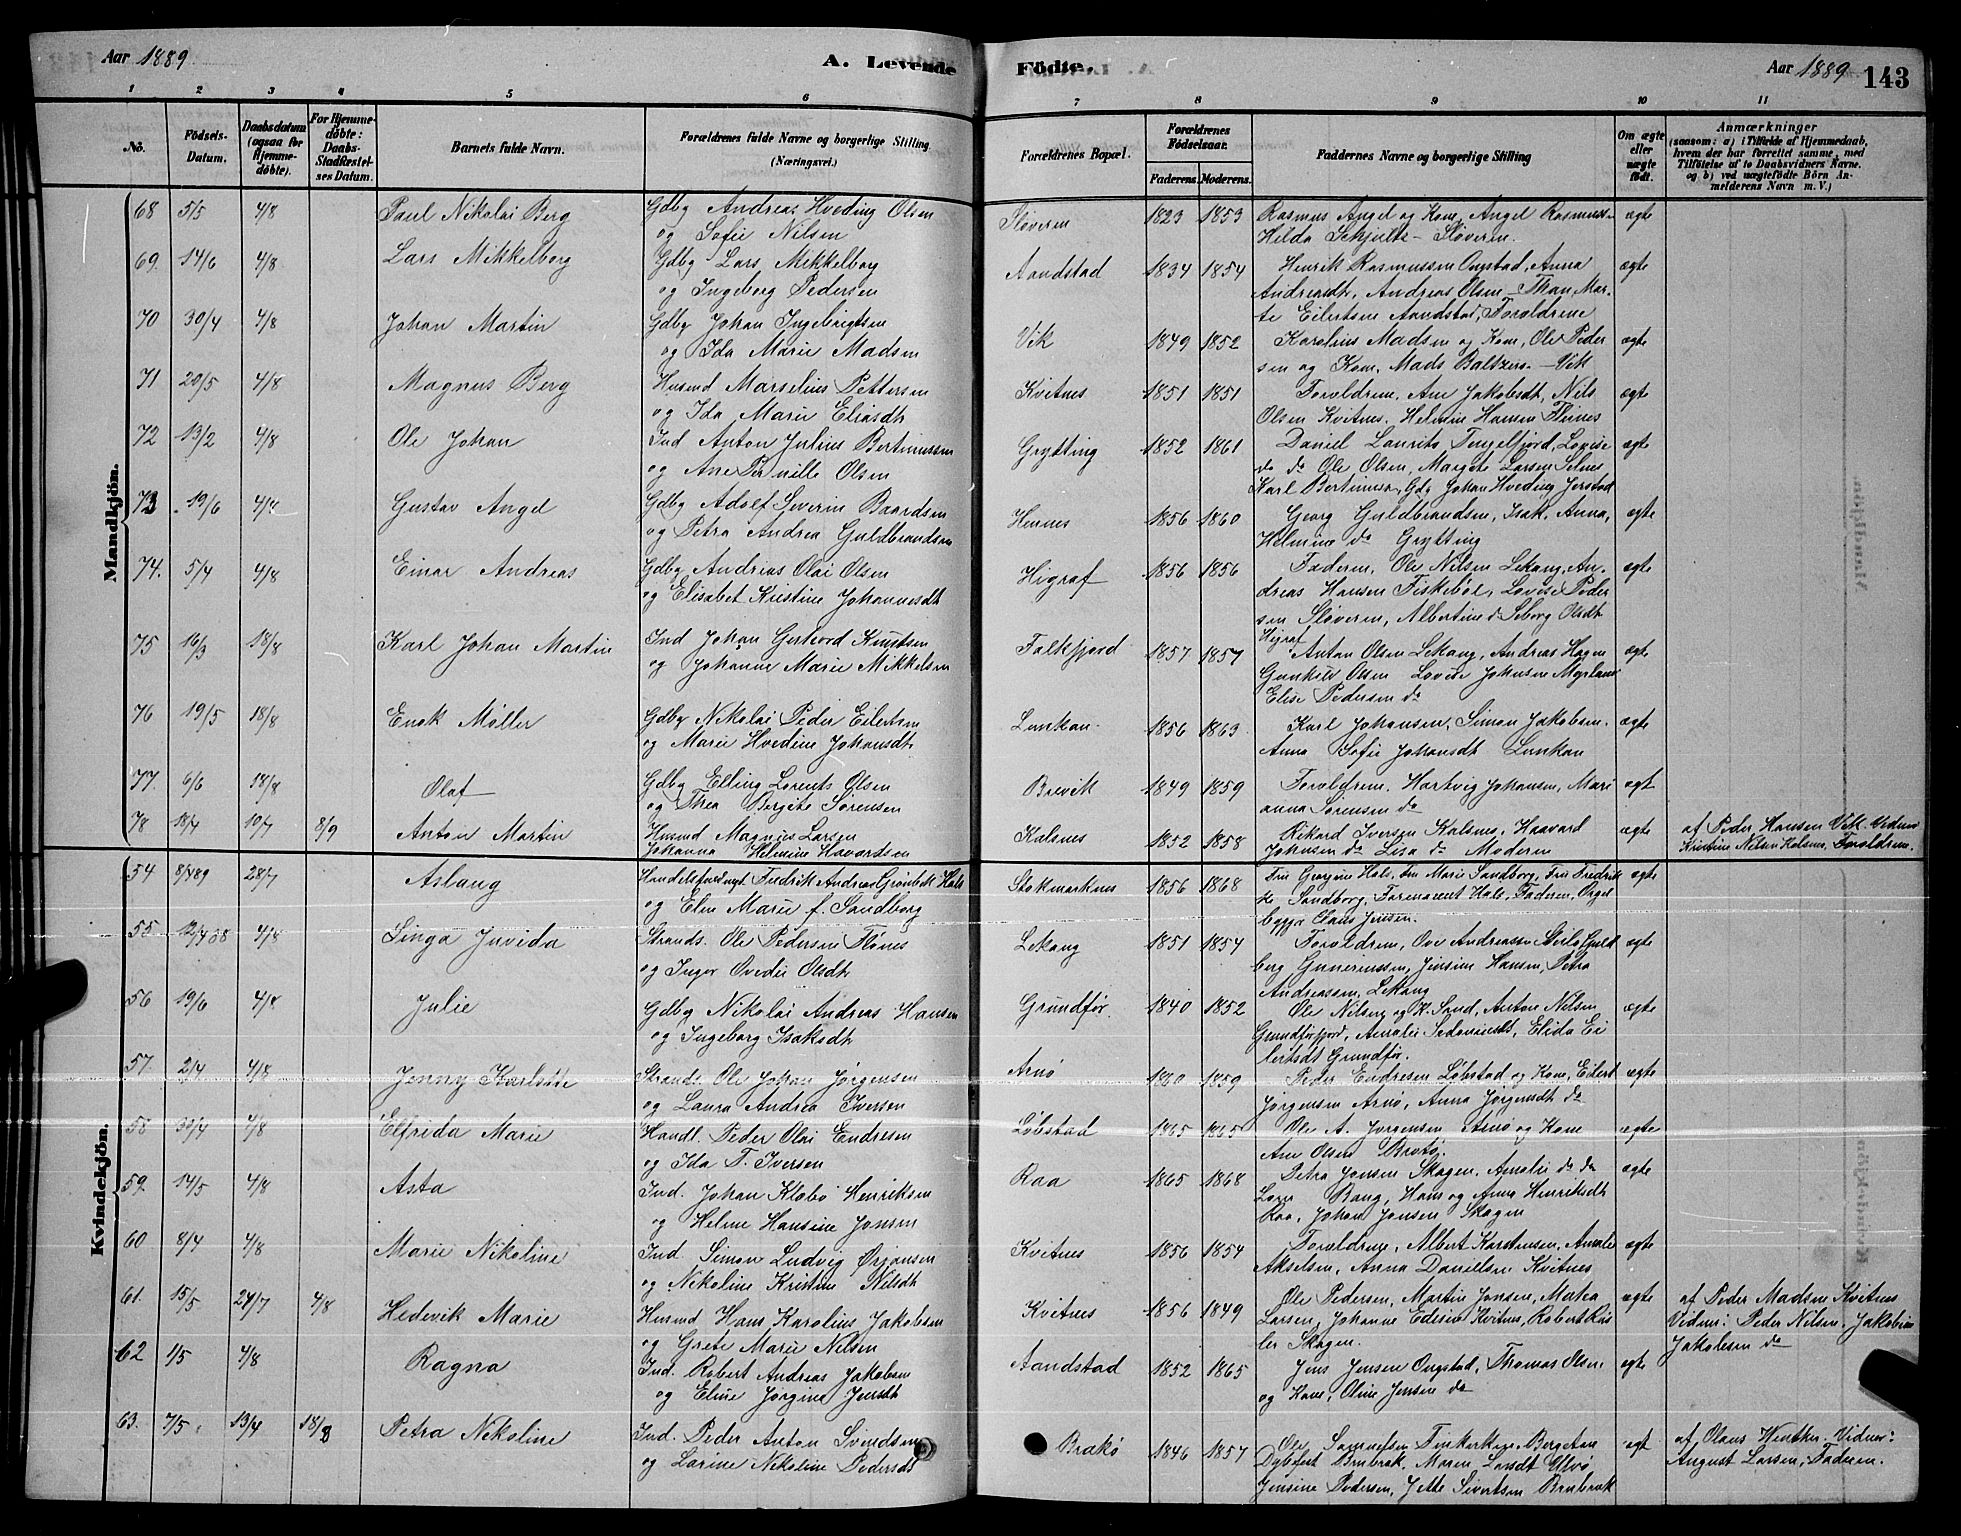 Aar 1889
A. Levende
1 2 3 4 5 6
No.
Födsels-Datum.
Daabsdatum (ogsaa for Hjemme-döbte).
For Hjemme-döbte: Daabs-Stadfæstel-ses Datum.
Barnets fulde Navn.
Forældrenes fulde Navne og borgerlige Stilling (Næringsvei.)
Mandkjön.
68 5/5 4/8 Paul Nikolai Berg Gdbg Andreas Hveding Olsen
og Sofie Nilsen
69. 14/6 4/8 Lars Mikkelborg Gdbg Lars Mikkelborg
og Ingeborg Pedersen
70 30/4 4/8 Johan Martin Gdbg Johan Ingebrigtsen
og Ida Marie Madsen
71 20/5 4/8 Magnus Berg Husmd Marselius Pettersen
og Ida Marie Eliasdt
72 13/2 4/8 Ole Johan Ind Anton Julius Bertinussen
og Ane Pernille Olsen
73 19/6 4/8 Gustav Angel Gdbg Adolf Severin Baardsen
og Petra Andrea Guldbrandsen
74. 5/4 4/8 Einar Andreas Gdbg Andreas Olai Olsen
og Elisabet Kristine Johannesdt
75 16/3 18/8 Karl Johan Martin Ind Johan Gerhard Knutsen
og Johanne Marie Mikkelsen
76 19/5 18/8 Enok Møller Gdbg Nikolai Peder Eilertsen
og Marie Hvedine Johansdt
77. 6/6 18/8 Olaf Gdbg Elling Lorents Olsen
og Thea Bergite Sørensen
78 18/4 10/7 8/9 Anton Martin Husmd Magnus Larsen
Johanna Helmine Havardsen
Kvindekjön.
54 8/489 28/7 Aslaug Fredrik Andreas Grønbek Hals
og Elen Marie f. Sandborg
55 12/4 88 4/8 Singa Juvida Strands. Ole Pedersen Flønes
og Inger Ovedie Olsdt
56 19/6 4/8 Julie Gdbg Nikolai Andreas Hansen
og Ingeborg Isaksdt
57. 2/4 4/8 Jenny Strands Ole Johan Jørgensen
og Laura Andrea Iversen
58 30/4 4/8 Elfrida Marie Handl. Peder Olai Endresen
og Ida T. Iversen
59. 14/5 4/8 Asta Ind. Johan Klæbo Henriksen
og Helene Hansine Jonsen
60 8/4 4/8 Marie Nikoline Ind. Simon Ludvig Ørjansen
og Nikoline Kristine Nilsdt
61. 15/5 24/7 4/8 Hedevik Marie Husmd Hans Karolius Jakobsen
og Grete Marie Nilsen
62 1/5 4/8 Ragna Ind. Robert Andreas Jakobsen
og Eline Jørgine Jensdt
63. 7/5 13/4 18/8 Petra Nikoline Ind. Peder Anton Svendsen
og Larine Nikoline Pedersdt
Födte.
Aar 1889 143
7 8 9 10 11
Forældrenes Bopæl.
Forældrenes Födselsaar.
Faderens. Moderens.
Faddernes Navne og borgerlige Stilling
Om ægte eller uægte födt.
Anmærkninger
(saasom: a) i Tilfælde af Hjemmedaab,
hvem der har forrettet samme, med
Tilföielse af to Daabsvidners Navne.
og b) ved uægtefödte Börn An-
melderens Navn m. V.)
Sløveren 1823 1853 Rasmus Angel og Kone, Angel Rasmussen ægte
Hilda Schjultz - Sløveren.
Aandstad 1834 1854 Henrik Rasmussen Ongstad, Anna ægte
Andreasdt, Andreas Olsen - Mar-
te Eilertsen Aandstad, Forældrene
Vik 1849 1852 Karelius Madsen og Kone, Ole Peder ægte
sen og Kone, Mads Baltzers. - Vik
Kvitnes 1851 1851 Forældrene, Ane Jakobsdt, Nils ægte
Olsen Kvitnes, Helmine Hansen Flines
Grytting 1852 1861 Daniel Laurits Tengelfjord, Lovise ægte
do do Ole Olsen, Margrete Larsen Selnes
Karl Bertinusen, Gdb Johan Hveding Jørstad
Hennes 1856 1860 Georg Guldbrandsen, Isak, Anna, ægte
Helmine do Grytting
Higraf 1856 1856 Faderen, Ole Nilsen Lekang, An- ægte
dreas Hansen Fiskebøl, Lovise Peder
sen Sløveren, Albertine Seborg Olsdt
Higraf
Falkfjord 1857 1857 Anton Olsen Lekang, Andreas Hagen ægte
Gunhild Olsen Lovise Johnsen Myrland
Elise Pedersen do
Lunkan 1856 1863 Karl Johansen, Simon Jakobsen. ægte
Anna Sofie Johansdt Lunkan
Brevik 1849 1859 Forældrene. Hartvig Johansen, Mari ægt
anna Sørensen do
Kalsnes 1852 1858 Rikard Iversen Kalsnes, Haavard ægte af Peder Hansen Vik. Vidner
Johnsen do Lisa do Moderen Kristine Nilsen Kalsnes, Forældrene.
Stokmarknes 1856 1868 Fru Georgine Hals, Fru Marie Sandborg, Fru Fredrik ægte
ke Sandborg, Hals, Faderen, Orgel
bygge Claus Jensen.
Lekang 1851 1854 Forældrene, Ove Andreassen Guld ægte
berg Gunnerinssen, Jensine Hansen, Petra
Andreassen, Lekang
Grundfør. 1840 1852 Ole Nilsen og K. Sand, Anton Nilsen ægte
Grundførfjord, Amalie Sedeniusdt, Elida Ei
lertsdt Grundfør.
Arnø 1860 1859 Peder Endresen Løbstad og Kone, Eilert ægte
Jørgensen Arnø, Anna Jørgensdt do
Løbstad 1865 1865 Ole A. Jørgensen Arnø og Kone ægte
Ane Olsen Brotø.
Raa 1865 1868 Petra Jonsen Skagen, Amalie do do ægte
Bang, Hans og Anna Henriksdt
Raa, Johan Jonsen Skagen
Kvitnes 1856 1854 Forældrene, Albert Karstensen, Amalie ægte
Akselsen, Anna Danielsen Kvitnes
Kvitnes 1856 1849 Ole Pedersen, Martin Jonsen, Matea ægte af Peder Madsen Kvitnes
Larsen, Johanne Kvitnes, Robert Røs Vidner: Peder Nilsen. Jakobine
ler Skagen. Jakobsen do
Aandstad 1852 1865 Jens Jensen Ongstad, Thomas Olsen ægte
og Kone, Oline Jensen do
Brakø 1846 1857 Ole Samuelsen Bergetan ægt af Olaus Vidner:
Maren Larsdt Ulvø August Larsen, Faderen.
Jensine Pedersen, Jette Sivertsen